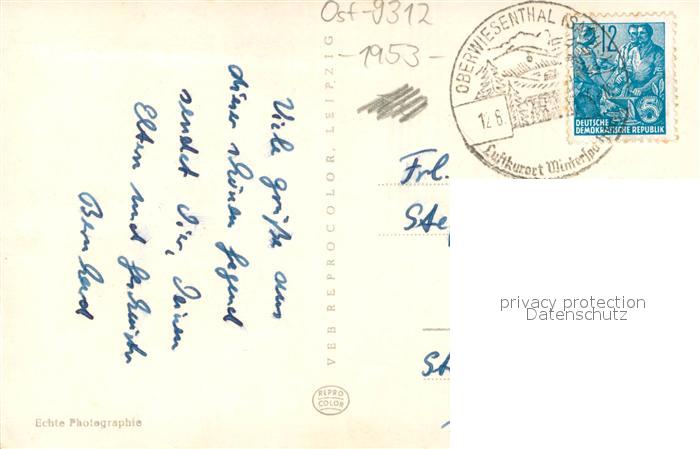 Ost-9312
-1953-
OBERWIESENTHAL
12.6.
Luftkurort Wintersp
12
DEUTSCHE
DEMOKRATISCHE REPUBLIK
Viele Grüße aus
dieser schönen Gegend
sendet Dir, Deinen
Eltern und Geschwister
Bernhard
VEB REPROCOLOR, LEIPZIG
Frl.
Ste
St
privacy protection
Datenschutz
REPRO
COLOR
Echte Photographie